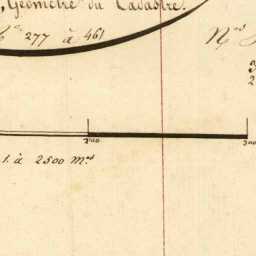 , Géomètre du Cadastre.
277 à 461
N.os
200
300
1. à 2500 M.es